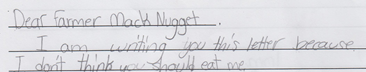 Dear Farmer Mack Nugget.
I am writing you this letter because
I don't think you should eat me